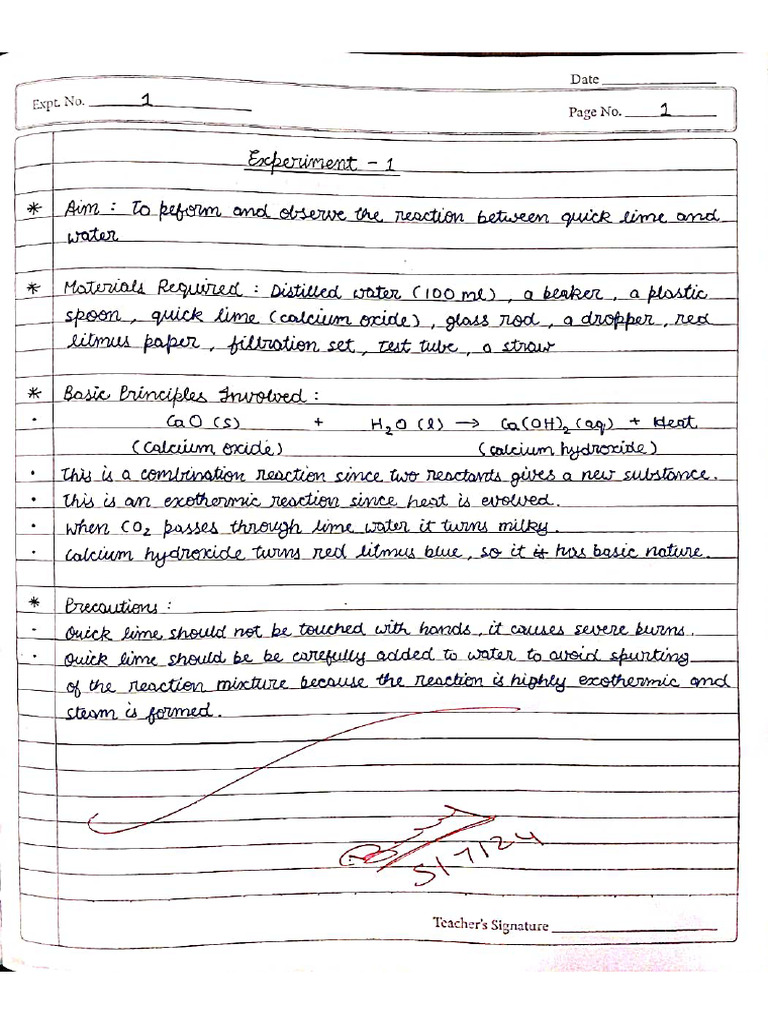 Date
Expt. No. 1
Page No. 1
Experiment - 1
* Aim : To peform and observe the reaction between quick lime and
water
* Materials Required : Distilled water (100 ml) , a beaker , a plastic
spoon , quick lime (calcium oxide) , glass rod , a dropper , red
litmus paper , filtration set , test tube , a straw
* Basic Principles Involved :
· CaO (s) + H₂O (l) → Ca(OH)₂ (aq) + Heat
(calcium oxide) (calcium hydroxide)
· This is a combination reaction since two reactants gives a new substance.
· This is an exothermic reaction since heat is evolved.
· When CO₂ passes through lime water it turns milky.
· Calcium hydroxide turns red litmus blue , so it is has basic nature.
* Precautions :
· Quick lime should not be touched with hands , it causes severe burns.
· Quick lime should be be carefully added to water to avoid spurting
of the reaction mixture because the reaction is highly exothermic and
steam is formed.
5/7/24
Teacher's Signature